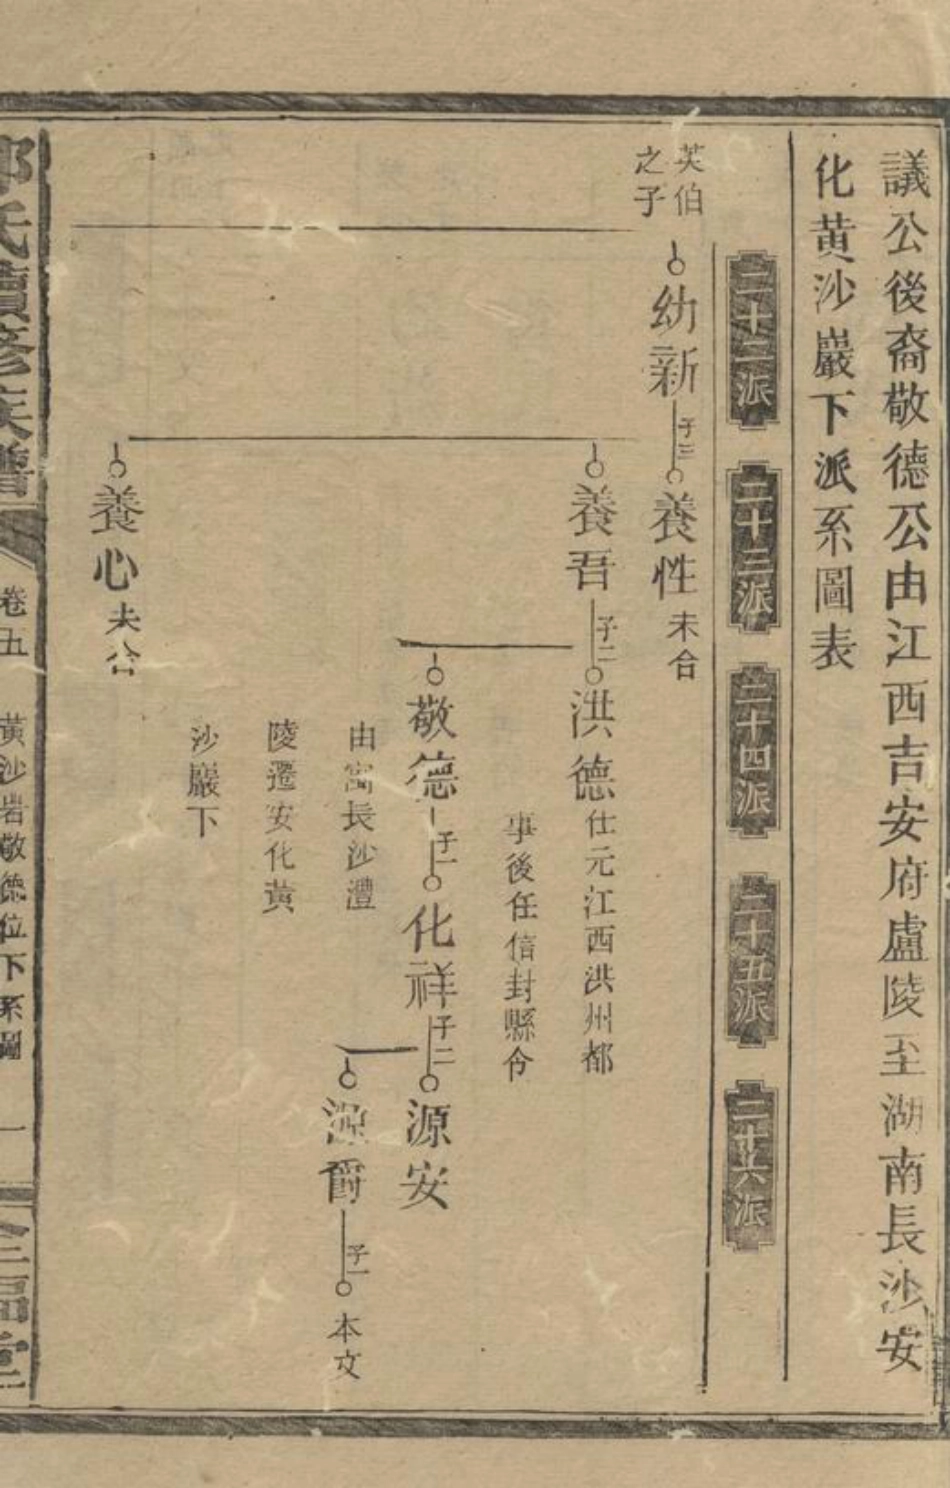 議公後裔敬德公由江西吉安府盧陵至湖南長沙安
化黃沙巖下派系圖表
二十二派
二十三派
二十四派
二十五派
二十六派
英伯
之子
幼新
子三
養性未合
養吾
子二
洪德仕元江西洪州都
事後任信封縣令
敬德
子一
化祥
子二
源安
源爵
子一
本文
由寓長沙澧
陵遷安化黃
沙巖下
養心未合
氏續修族譜
卷五
黃沙岩敬德位下系圖
一